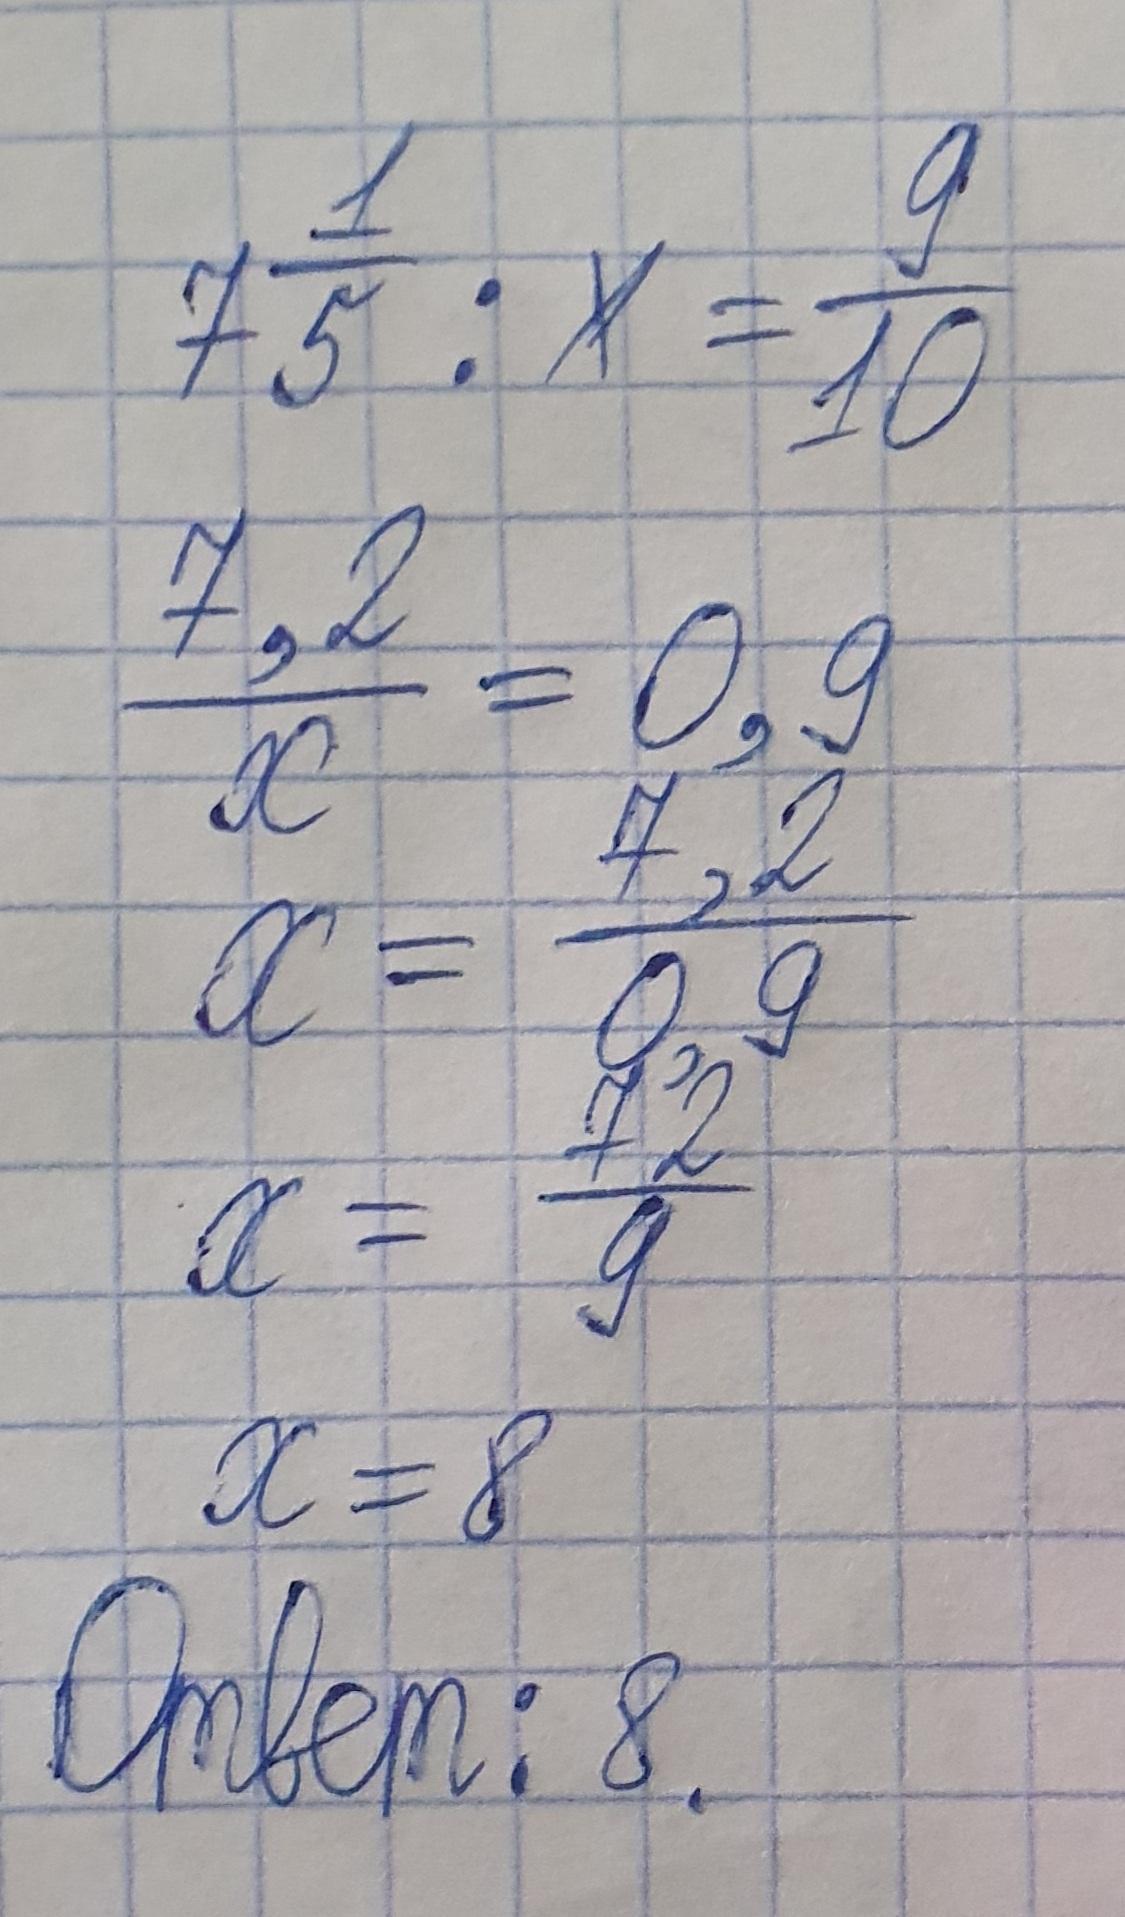 7 1/5 : x = 9/10
7,2/x = 0,9
x = 7,2/0,9
x = 72/9
x = 8
Ответ: 8.